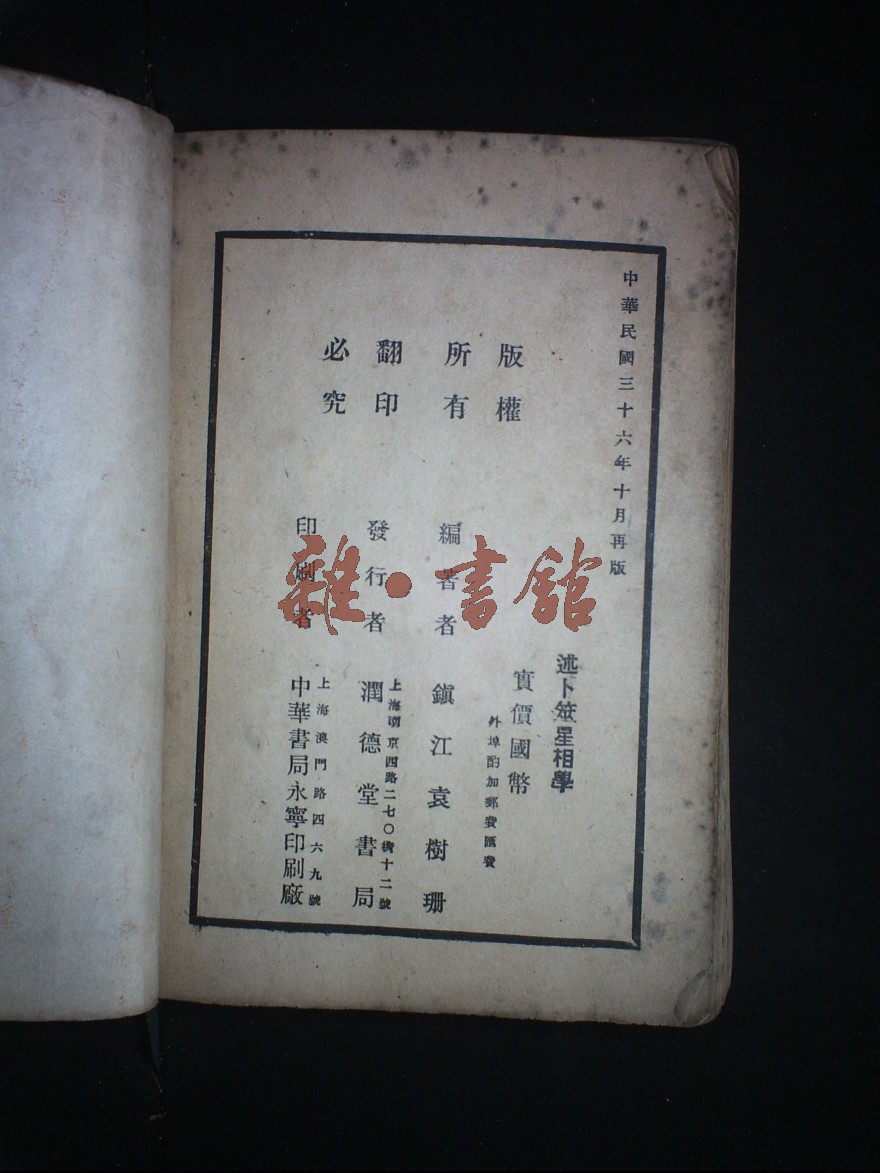 中華民國三十六年十月再版
版權
所有
翻印
必究
述卜筮星相學
實價國幣
外埠酌加郵費匯費
編著者 鎭江袁樹珊
上海南京西路二七〇街十二號
發行者 潤德堂書局
上海澳門路四六九號
印刷者 中華書局永寧印刷廠
雜·書館